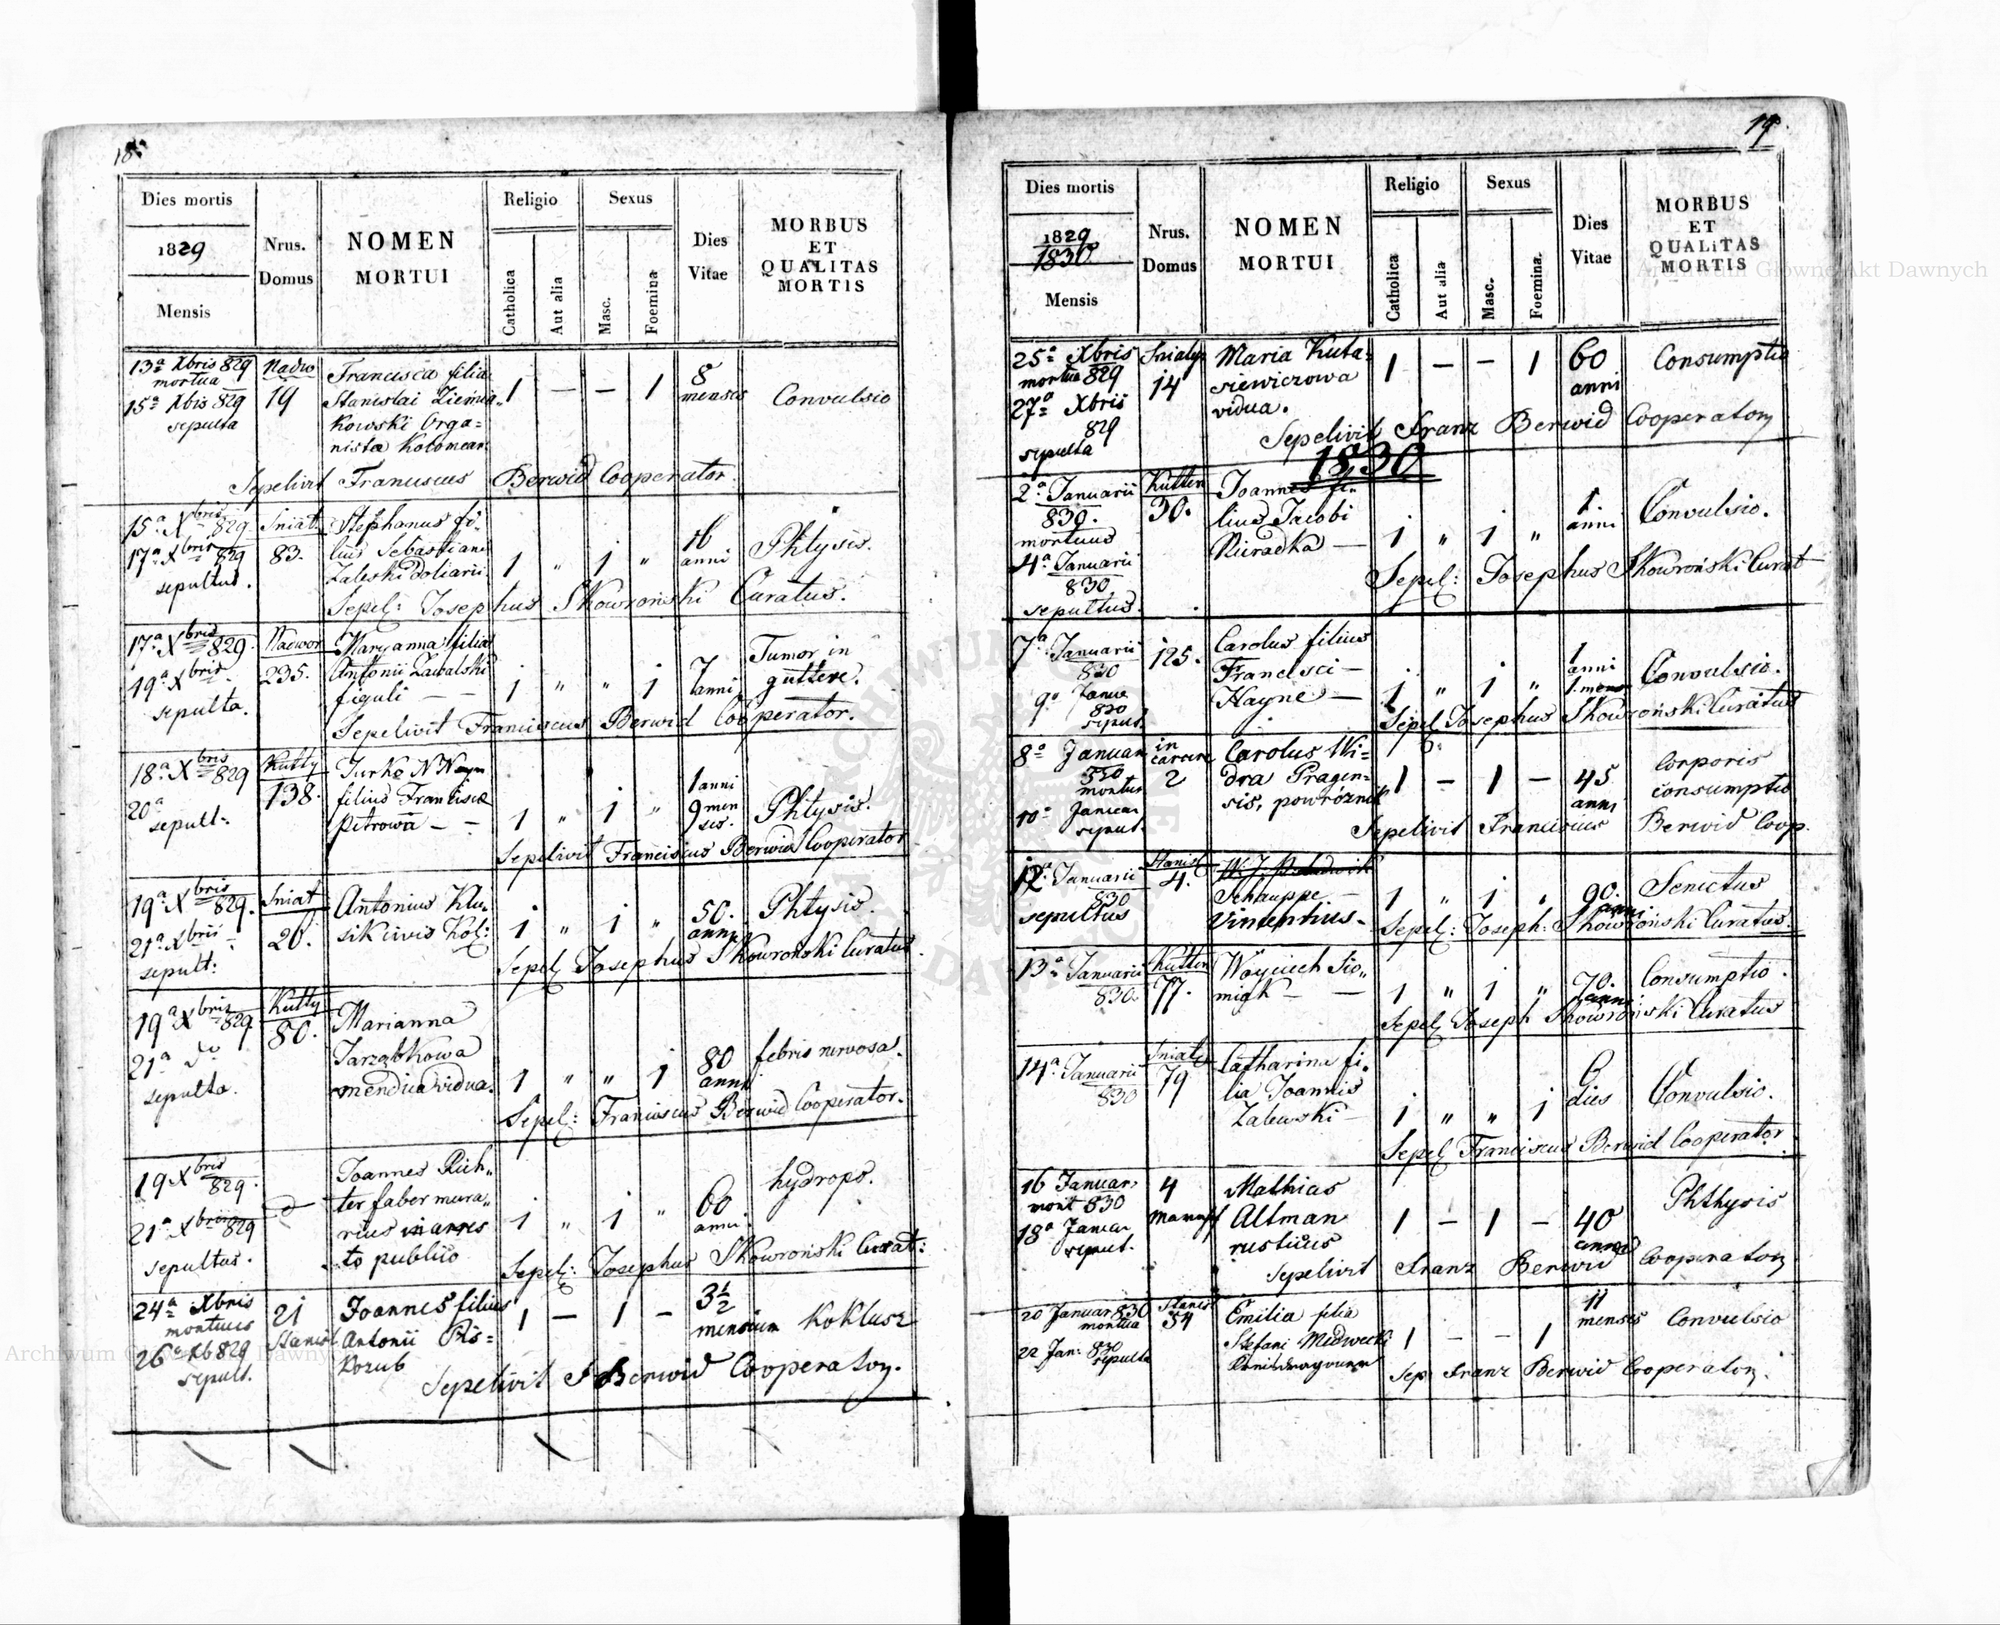 18.
Dies mortis
1829
Mensis
Nrus.
Domus
NOMEN
MORTUI
Religio
Catholica
Aut alia
Sexus
Masc.
Foemina
Dies
Vitae
MORBUS
ET
QUALITAS
MORTIS
13a Xbris 829
mortua
15a Xbis 829
sepulta
Nadw
19
Francisca filia
Stanislai Ziemia-
kowski Orga=
nistæ Kolomean
1 — — 1
8
menses
Convulsio
Sepelivit Franciscus Berwid Cooperator.
15a Xbris 829
17a Xbris 829
sepultus.
Sniat.
83.
Stephanus fi-
lius Sebastiani
Zaleski doliarii
1 " 1 "
16
anni
Phtysis.
Sepel: Josephus Skowroński Curatus.
17a Xbris 829.
19a Xbris.
sepulta.
Nadwor
235.
Maryanna filia
Antonii Zawalski
figuli — —
1 " " 1
7
anni
Tumor in
guttere.
Sepelivit Franciscus Berwid Cooperator.
18a Xbris 829
20a
sepult:
Kutty
138.
Jurko N
filius Franciscæ
Petrowa — —
1 " 1 "
1 anni
9 men
ses.
Phtysis.
Sepelivit Franciscus Berwid Cooperator
19a Xbris 829.
21a Xbris
sepult:
Sniat
20.
Antonius Klu-
sik civis Kol:
1 " 1 "
50.
anni
Phtysis.
Sepel: Josephus Skowroński Curatus
19a Xbris 829
21a do
sepulta.
Kutty
80.
Marianna
Jarząbkowa
mendica vidua.
1 " " 1
80
anni
febris nervosa.
Sepel: Franciscus Berwid Cooperator.
19 Xbris 829.
21a Xbris 829
sepultus.
Joannes Rich-
ter faber mura-
rius in arres
to publico
1 " 1 "
60
anni
hydrops.
Sepel: Josephus Skowroński Curat:
24a Xbris
mortuus
26a Xb 829
sepult.
21
Stanisl
Joannes filius
Antonii Pis=
kozub
1 — 1 —
3½
mensium
Koklusz
Sepelivit F Berwid Cooperator.
19.
Dies mortis
1829
1830
Mensis
Nrus.
Domus
NOMEN
MORTUI
Religio
Catholica
Aut alia
Sexus
Masc.
Foemina.
Dies
Vitae
MORBUS
ET
QUALITAS
MORTIS
25a Xbris
mortua 829
27a Xbris
829
sepulta
Sniaty
14
Maria Kuta=
siewiczowa
vidua.
1 — — 1
60
anni
Consumptio
Sepelivit Franz Berwid Cooperator
1830
2a Januarii
830.
mortuus
4a Januarii
830
sepultus.
Kutten
30.
Joannes fi-
lius Jacobi
Nieradka —
1 " 1 "
1
anni
Convulsio.
Sepel: Josephus Skowroński Curat
7a Januarii
830
9a Janua
830
sepult.
125.
Carolus filius
Francisci —
Hayne —
1 " 1 "
1
anni
1 mens
Convulsio.
Sepel: Josephus Skowroński Curatus
8a Januar
830
mortus
10a Januar
sepult.
in
carcere
2
Carolus Wi=
dra Pragen-
sis, powróznik
1 — 1 —
45
anni
Corporis
consumptio
Sepelivit Franciscus Berwid Coop.
12a Januarii
830
sepultus
Stanisl
4.
Schauppe —
Vincentius —
1 " 1 "
90.
anni
Senectus
Sepel: Joseph: Skowroński Curatus.
13a Januarii
830.
Kutten
77.
Woyciech Sio-
migk — —
1 " 1 "
70.
anni
Consumptio.
Sepel: Joseph Skowroński Curatus
14a Januarii
830
Sniat
79
Catharina fi-
lia Joannis
Zalewski —
1 " " 1
6
dies
Convulsio.
Sepel: Franciscus Berwid Cooperator
16 Januar.
mort 830
18a Januar
sepult.
4
Mathias
Altman
rusticus
1 — 1 —
40
anni
Phthysis
Sepelivit Franz Berwid Cooperator
20 Januar 830
mortua
22 Jan: 830
sepulta
Stanis
54
Emilia filia
Stefani Medwecki
1 — — 1
11
menses
Convulsio
Sep Franz Berwid Cooperator.
Archiwum Główne Akt Dawnych
Archiwum Główne Akt Dawnych